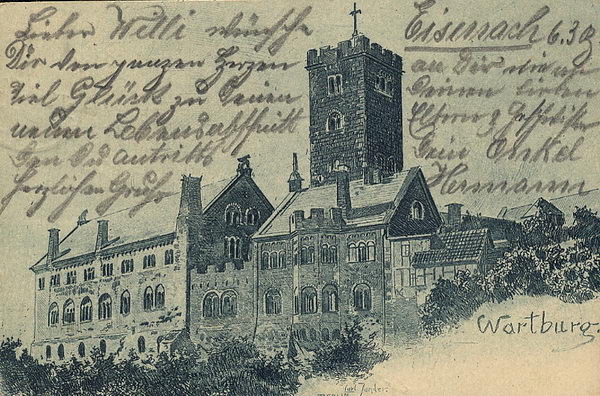 Lieber Willi wünsche
Dir von ganzen Herzen
viel Glück zu Deinen
neuen Lebensabschnitt
den Du antritts
herzlichen Gruß
Eisenach 6.3.
an Dir wie
Deinen lieben
Eltern & Geschwister
Dein Onkel
Hermann
Wartburg.